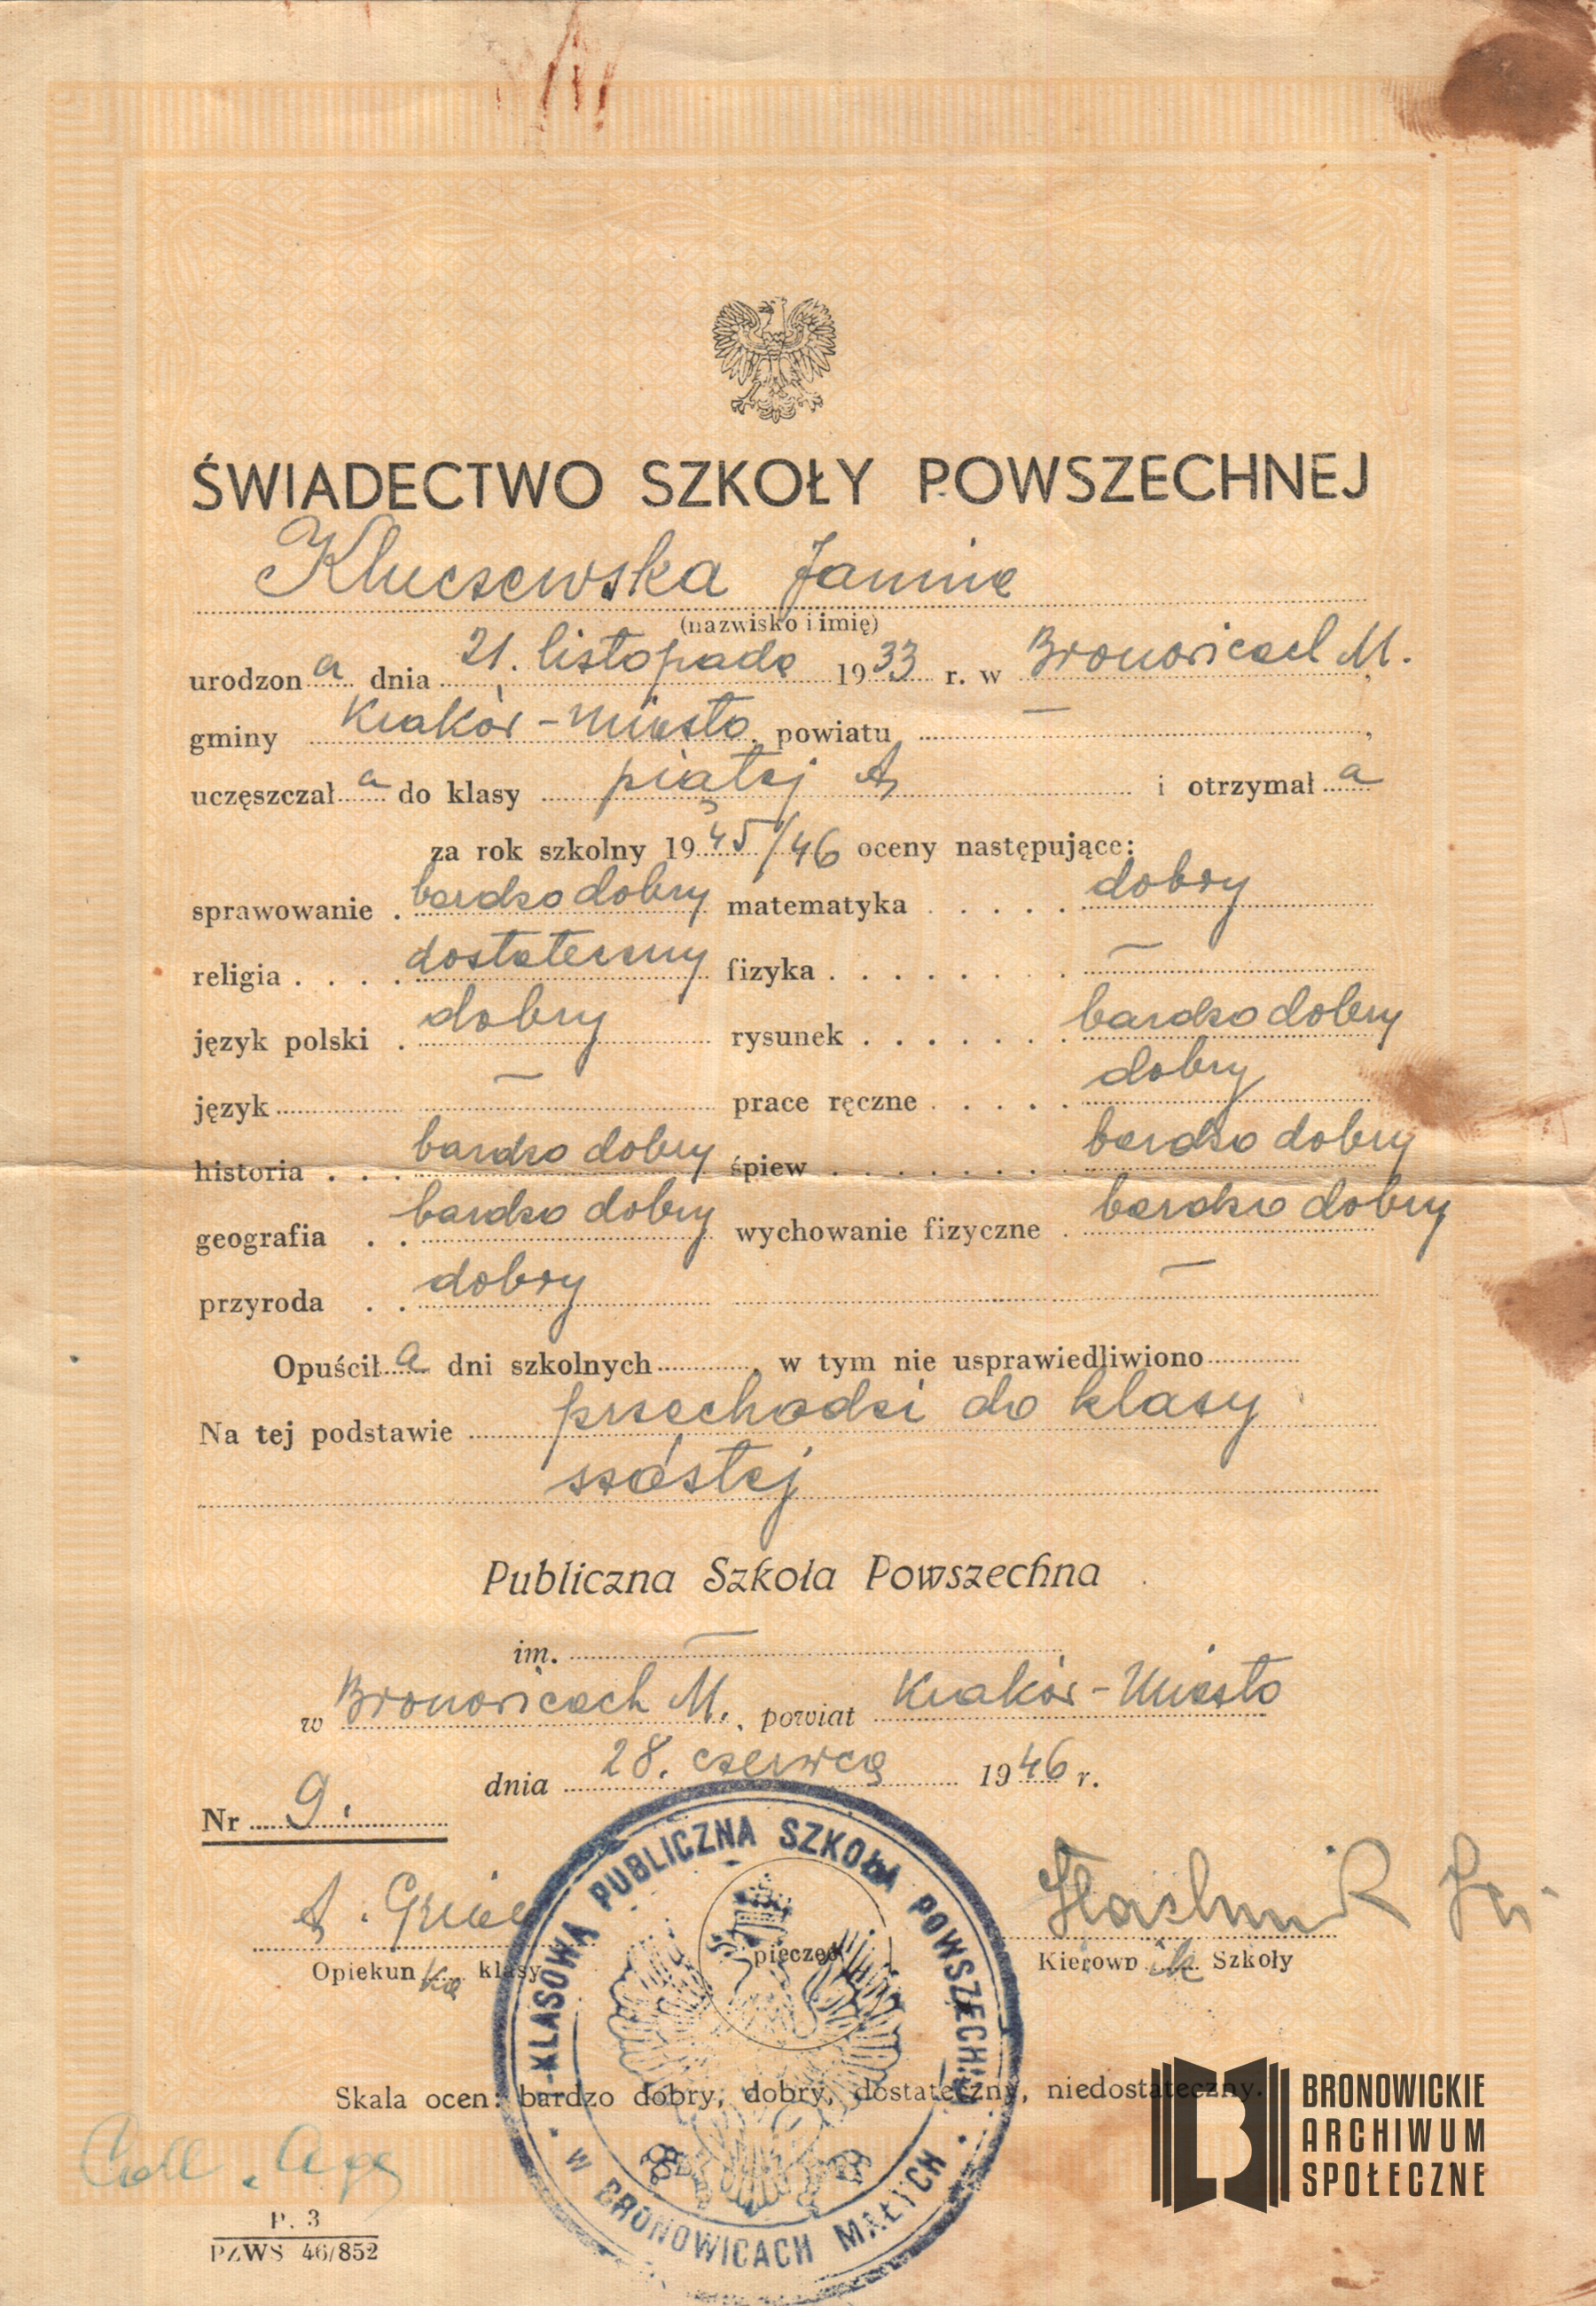 ŚWIADECTWO SZKOŁY POWSZECHNEJ
Kluczewska Janina
(nazwisko i imię)
urodzona dnia 21. listopada 1933 r. w Bronowicach M.,
gminy Kraków-Miasto, powiatu —,
uczęszczała do klasy piątej A i otrzymała
za rok szkolny 1945/46 oceny następujące:
sprawowanie . bardzo dobry matematyka . . . . . dobry
religia . . . . dostateczny fizyka . . . . . . . . —
język polski . dobry rysunek . . . . . . . bardzo dobry
język — prace ręczne . . . . . dobry
historia . . . bardzo dobry śpiew . . . . . . . . bardzo dobry
geografia . . bardzo dobry wychowanie fizyczne . bardzo dobry
przyroda . . dobry —
Opuściła dni szkolnych, w tym nie usprawiedliwiono
Na tej podstawie przechodzi do klasy
szóstej
Publiczna Szkoła Powszechna
im. —
w Bronowicach M., powiat Kraków-Miasto
dnia 28. czerwca 1946 r.
Nr 9.
A.
Opiekunka klasy
pieczęć
Kierownik Szkoły
KLASOWA PUBLICZNA SZKOŁA POWSZECHNA
W BRONOWICACH MAŁYCH
Skala ocen: bardzo dobry, dobry, dostateczny, niedostateczny.
P. 3
PZWS 46/852
BRONOWICKIE
ARCHIWUM
SPOŁECZNE